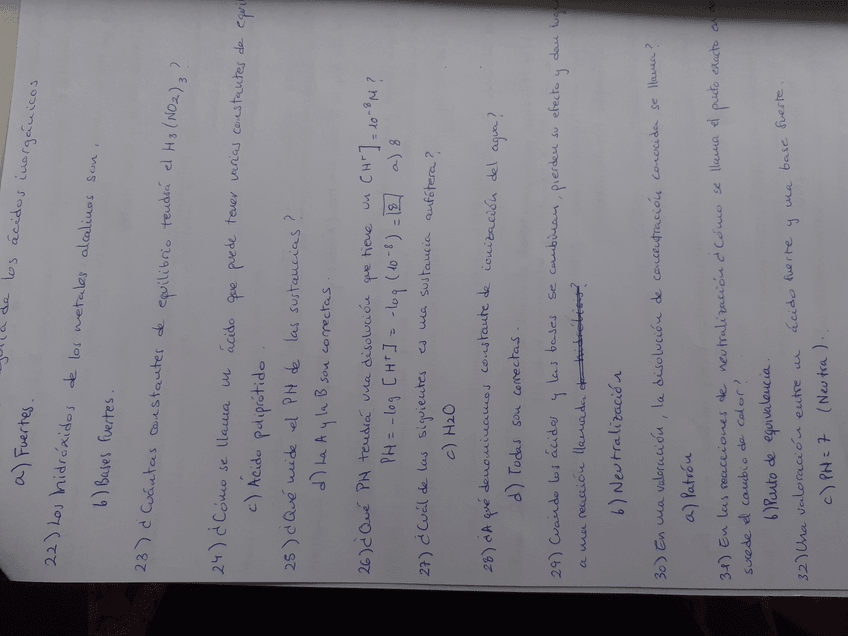 de los ácidos inorgánicos
a) Fuertes.
22) Los hidróxidos de los metales alcalinos son.
b) Bases fuertes.
23) ¿Cuántas constantes de equilibrio tendrá el H3(NO2)3?
24) ¿Cómo se llama un ácido que puede tener varias constantes de
c) Ácido poliprótido.
25) ¿Qué mide el PH de las sustancias?
d) La A y la B son correctas.
26) ¿Qué PH tendrá una disolución que tiene un [H+] = 10-8 M?
PH = -log [H+] = -log (10-8) = 8 a) 8
27) ¿Cuál de las siguientes es una sustancia anfótera?
c) H2O
28) ¿A qué denominamos constante de ionización del agua?
d) Todas son correctas.
29) Cuando los ácidos y las bases se combinan, pierden su efecto y dan
a una reacción llamada
b) Neutralización
30) En una valoración, la disolución de concentración conocida se llama?
a) Patrón
31) En las reacciones de neutralización ¿Cómo se llama el punto exato
sucede el cambio de color?
b) Punto de equivalencia.
32) Una valoración entre un ácido fuerte y una base fuerte.
c) PH = 7 (Neutra).